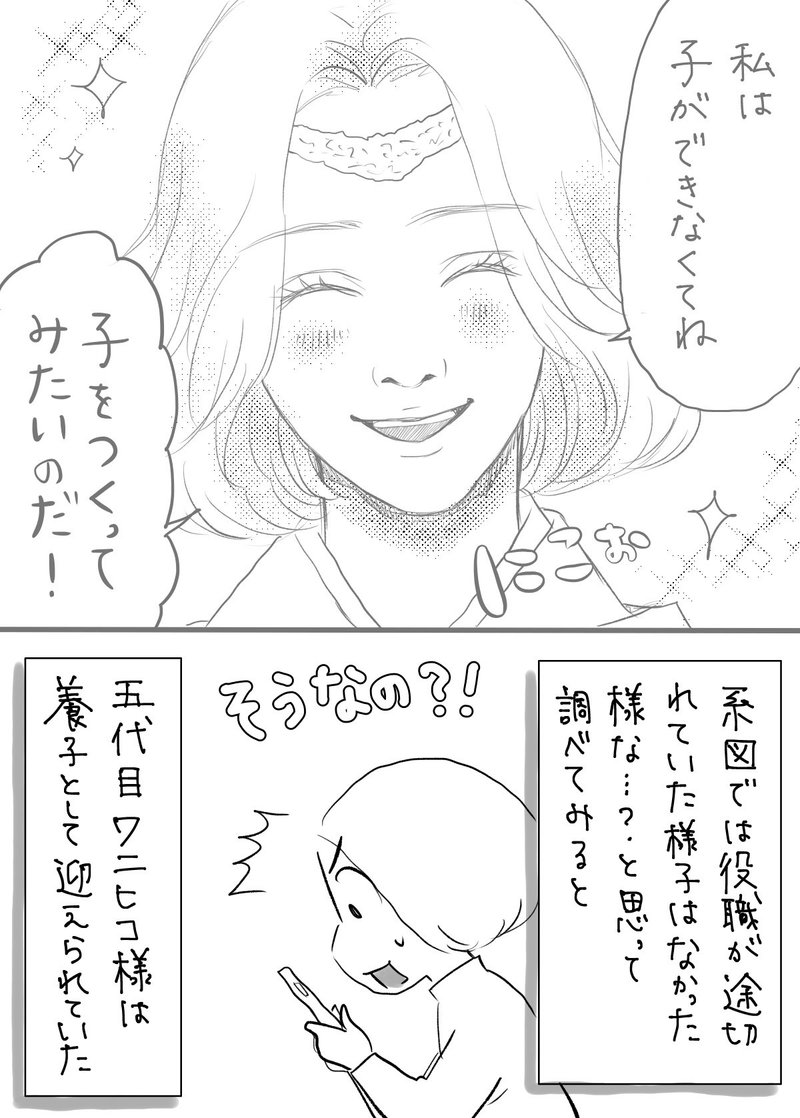 私は
子ができなくてね
子をつくって
みたいのだ!
お
系図では役職が途切
れていた様子はなかった
様な…?と思って
調べてみると
そうなの?!
五代目ワニヒコ様は
養子として迎えられていた